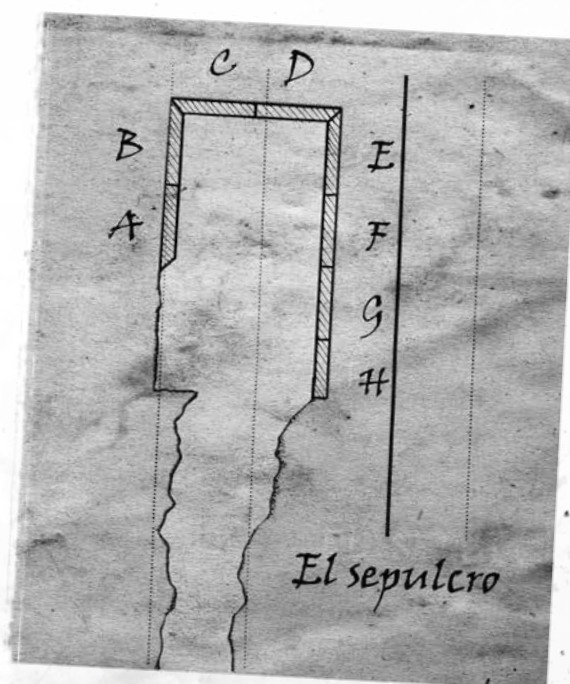 C D
B E
A F
G
H
El sepulcro